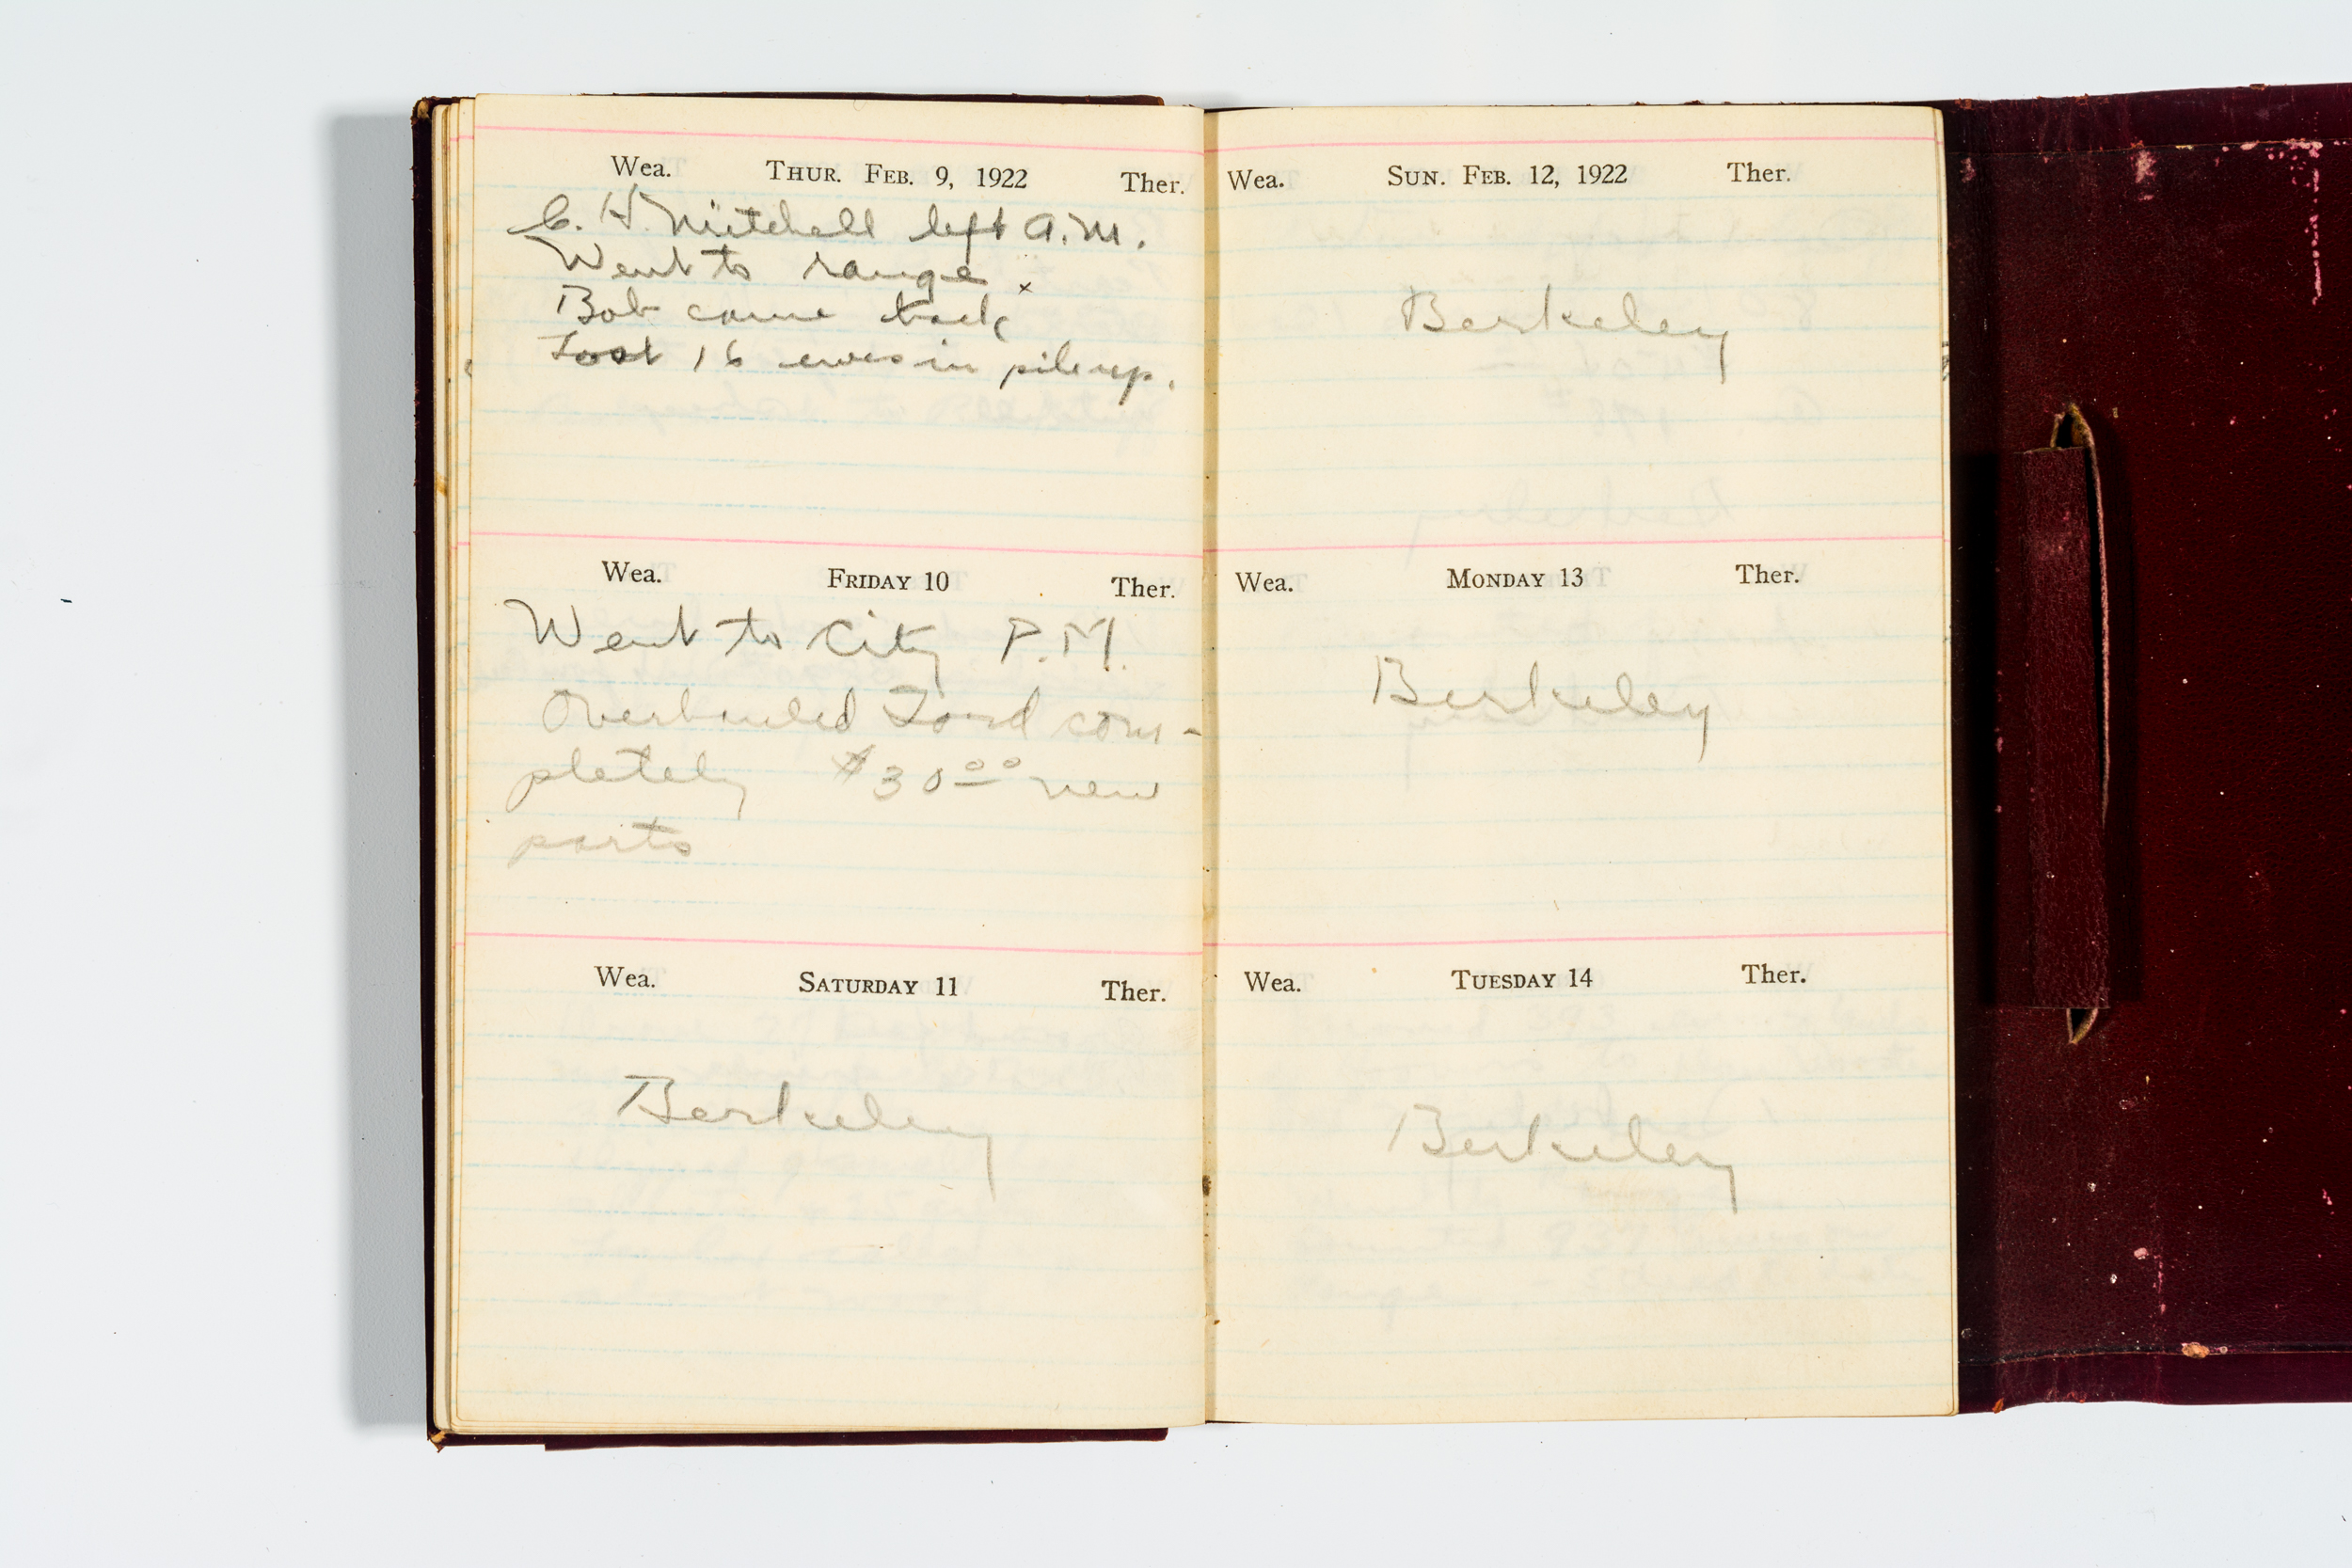 Wea. THUR. FEB. 9, 1922 Ther.
C. H. Mitchell left A.M.
Went to range
Bob came back x
Lost 16 ewes in pile up.
Wea. FRIDAY 10 Ther.
Went to City P.M.
Overhauled Ford com-
pletely $30.00 new
parts
Wea. SATURDAY 11 Ther.
Berkeley
Wea. SUN. FEB. 12, 1922 Ther.
Berkeley
Wea. MONDAY 13 Ther.
Berkeley
Wea. TUESDAY 14 Ther.
Berkeley